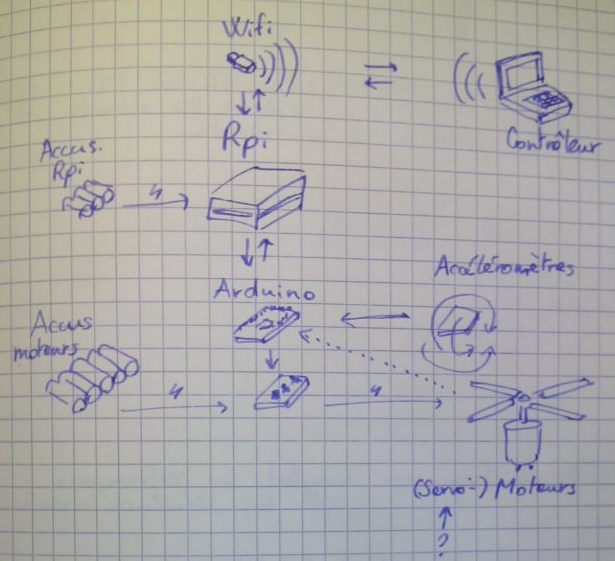 Wifi
Rpi
Contrôleur
Accus.
Rpi
4
Arduino
Accéléromètres
Accus
moteurs
4
4
(Servo-) Moteurs
?